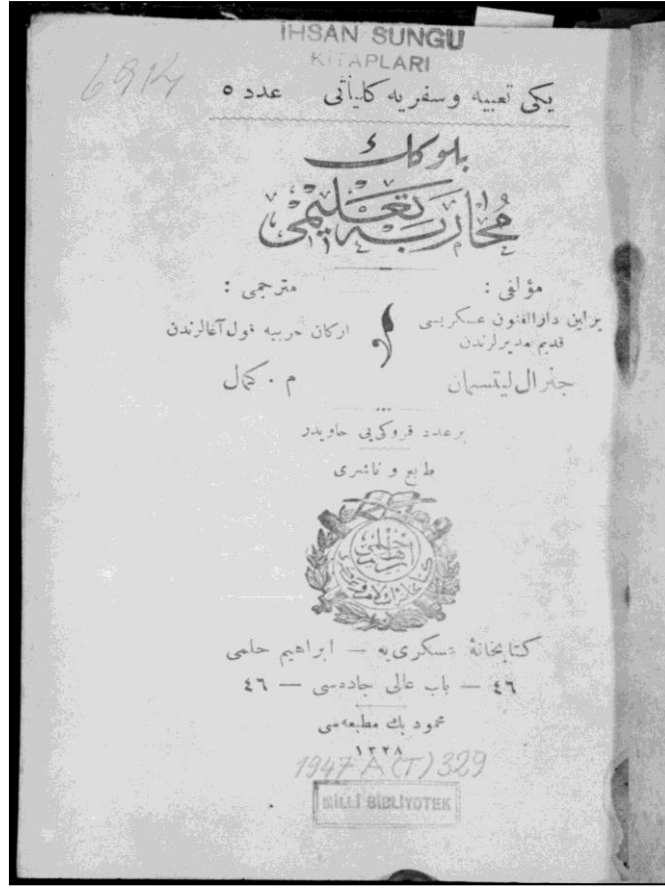 İHSAN SUNGU
KİTAPLARI
6914
يكى تعبيه وسفريه كلياتى عدد ٥
بلوكك
محاربه تعليمى
مؤلفى :
برلين دارالفنون عسكريسى
قديم مديرلرندن
جنرال ليتسمان
مترجمى :
اركان حربيه قول آغالرندن
م . كمال
بر عدد قروكى يى حاويدر
طبع و ناشرى
كتابخانۀ عسكرى يه — ابراهيم حلمى
٤٦ — باب عالى جاده سى — ٤٦
محمود بك مطبعه سى
١٣٢٨
1947 A (T) 329
MİLLİ BİBLİYOTEK